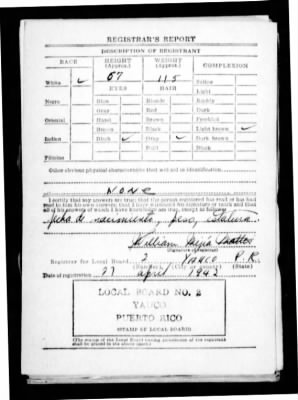 REGISTRAR'S REPORT
DESCRIPTION OF REGISTRANT
RACE HEIGHT (Approx.) WEIGHT (Approx.) COMPLEXION
White ✓ 67 115 Sallow
EYES HAIR Light
Negro Blue Blonde Ruddy
Gray Red Dark
Oriental Hazel Brown Freckled
Brown Black Light brown ✓
Indian Black ✓ Gray ✓ Dark brown
Bald Black
Filipino
Other obvious physical characteristics that will aid in identification
None
I certify that my answers are true; that the person registered has read or has had read to him his own answers; that I have witnessed his signature or mark and that all of his answers of which I have knowledge are true, except as follows:
fecha de nacimiento, peso, estatura.
William Mejia Mattei
Registrar for Local Board 2 Yauco P.R.
(Number) (City or county) (State)
Date of registration 27 April 1942
LOCAL BOARD NO. 2
YAUCO
PUERTO RICO
(STAMP OF LOCAL BOARD)
(The stamp of the Local Board having jurisdiction of the registrant shall be placed in the above space)